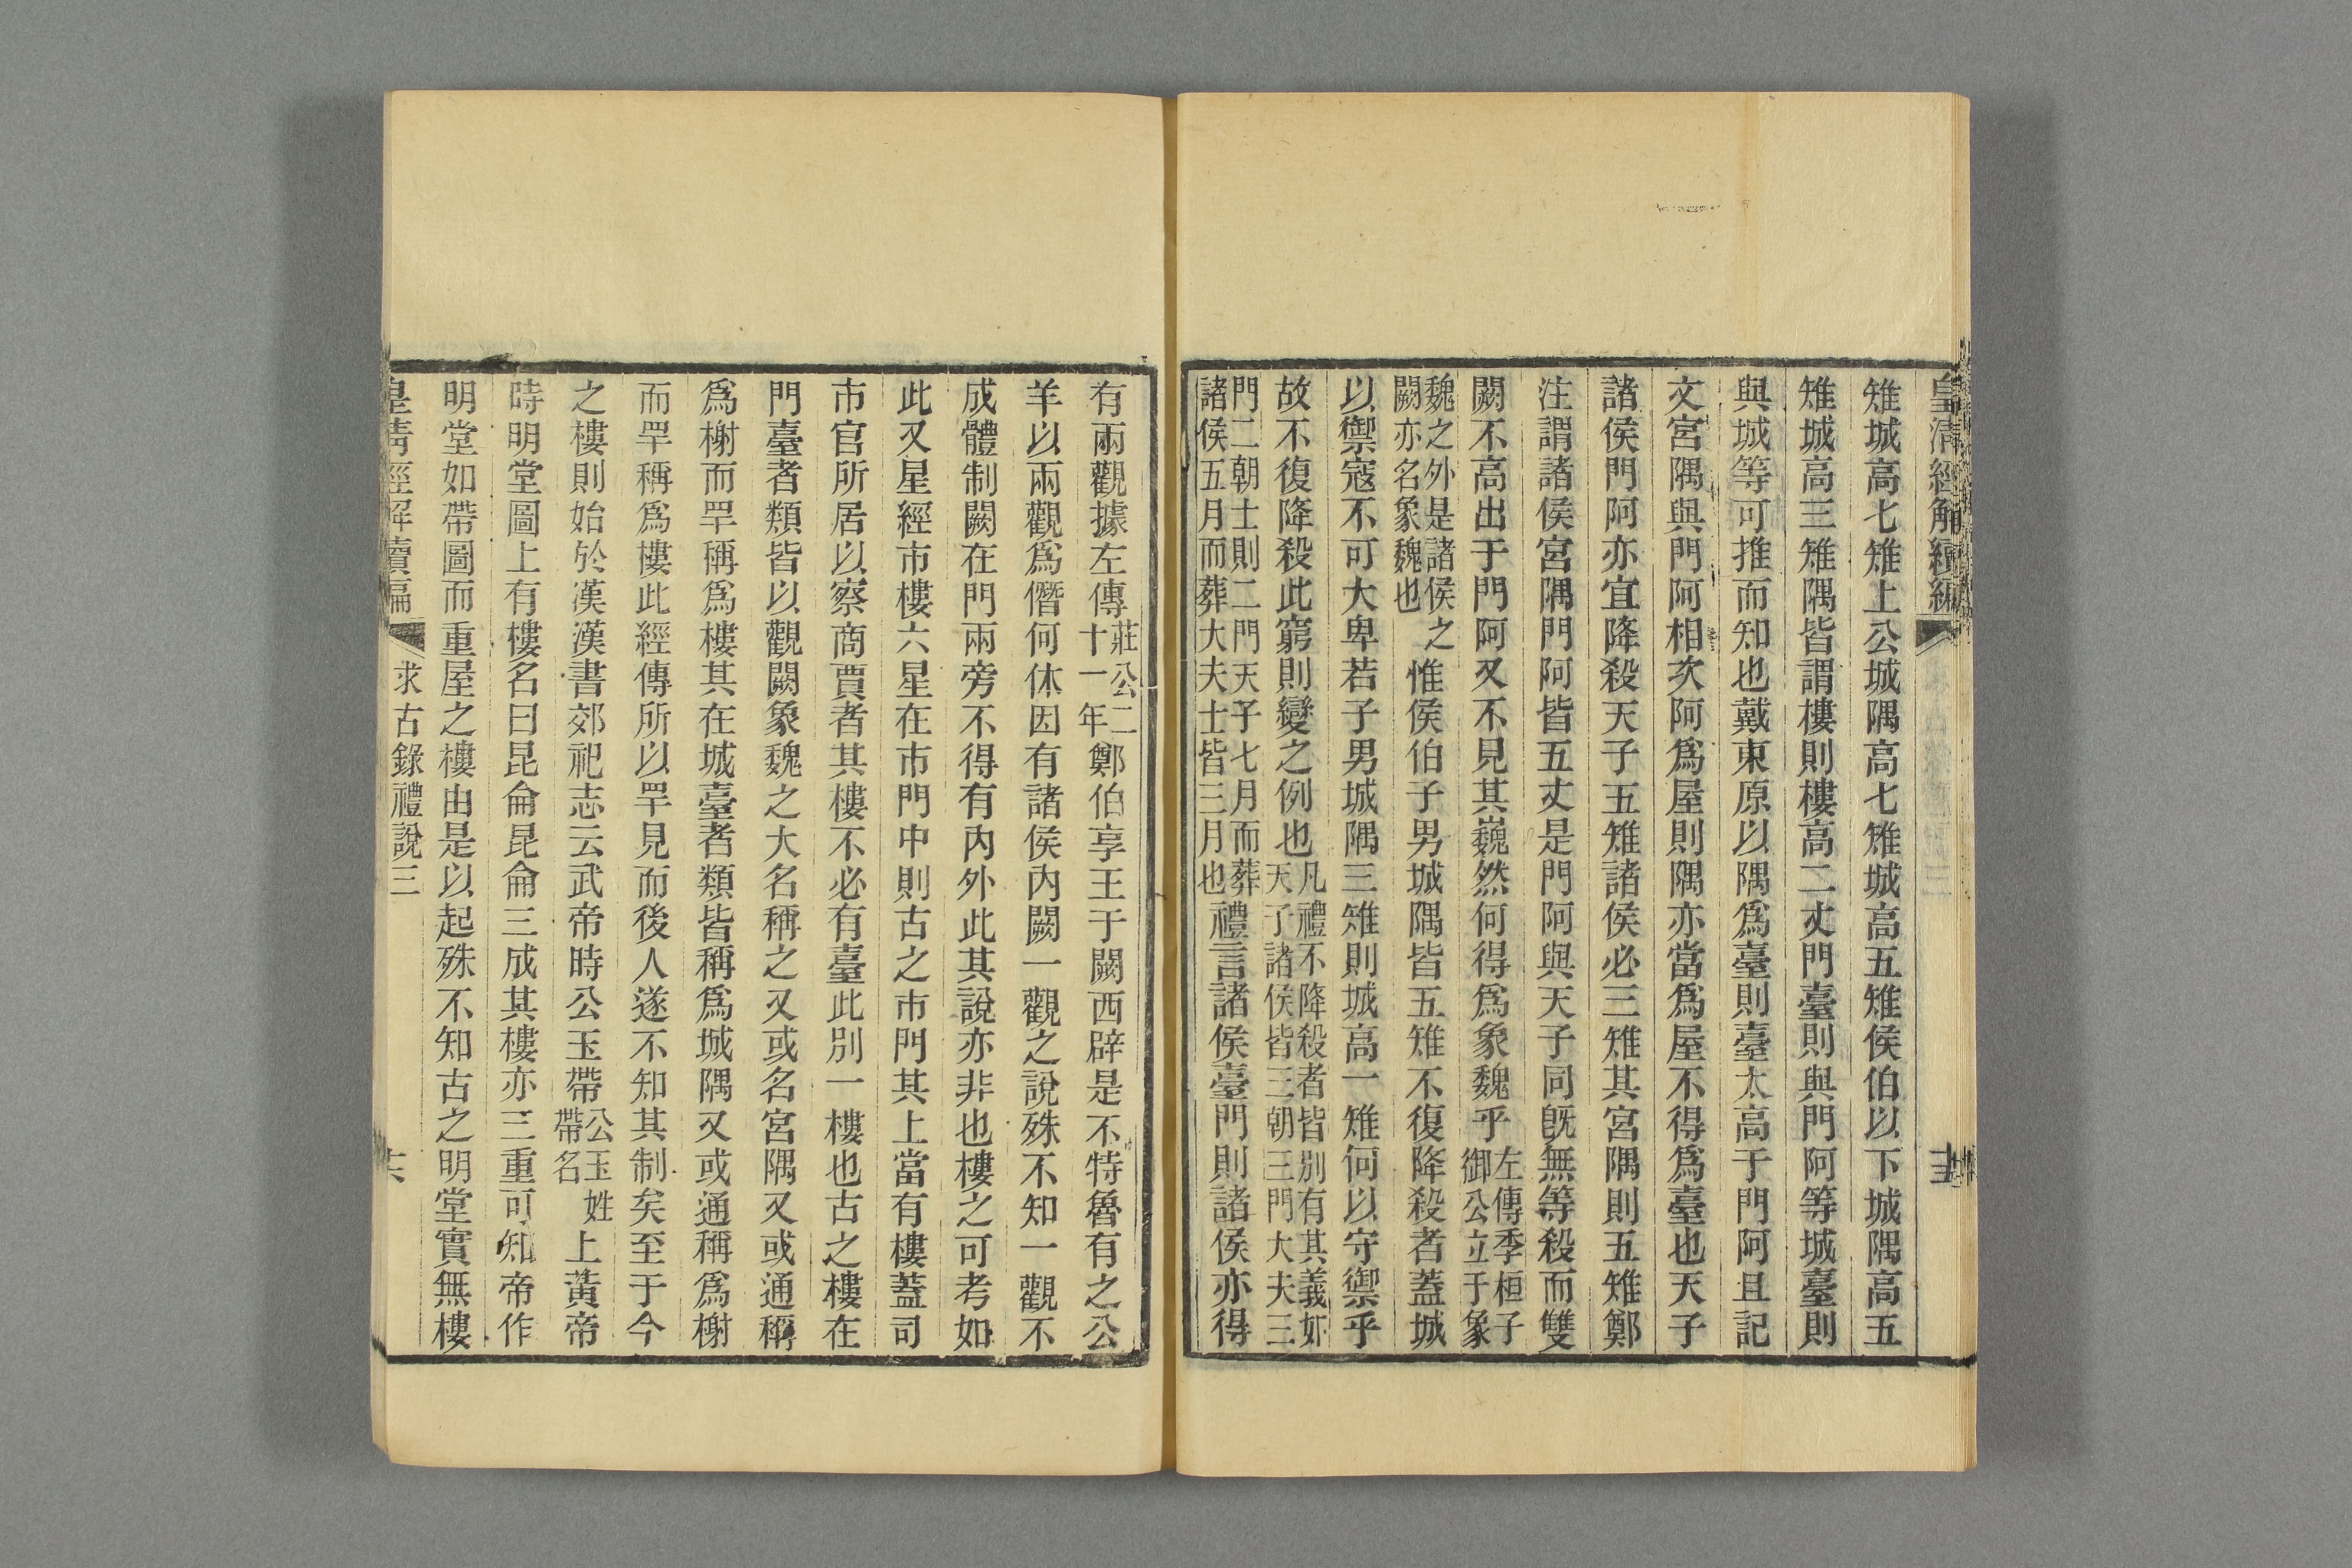 皇清經解續編
雉城高七雉上公城隅高七雉城高五雉侯伯以下城隅高五
雉城高三雉隅皆謂樓則樓高二丈門臺則與門阿等城臺則
與城等可推而知也戴東原以隅爲臺則臺太高于門阿且記
文宮隅與門阿相次阿爲屋則隅亦當爲屋不得爲臺也天子
諸侯門阿亦宜降殺天子五雉諸侯必三雉其宮隅則五雉鄭
注謂諸侯宮隅門阿皆五丈是門阿與天子同旣無等殺而雙
闕不高出于門阿又不見其巍然何得爲象魏乎左傳季桓子御公立于象
魏之外是諸侯之闕亦名象魏也惟侯伯子男城隅皆五雉不復降殺者蓋城
以禦寇不可大卑若子男城隅三雉則城高一雉何以守禦乎
故不復降殺此窮則變之例也凡禮不降殺者皆別有其義如天子諸侯皆三朝三門大夫三
門二朝士則二門天子七月而葬諸侯五月而葬大夫士皆三月也禮言諸侯臺門則諸侯亦得
有兩觀據左傳莊公二十一年鄭伯享王于闕西辟是不特魯有之公
羊以兩觀爲僭何休因有諸侯內闕一觀之說殊不知一觀不
成體制闕在門兩旁不得有內外此其說亦非也樓之可考如
此又星經市樓六星在市門中則古之市門其上當有樓蓋司
市官所居以察商賈者其樓不必有臺此別一樓也古之樓在
門臺者類皆以觀闕象魏之大名稱之又或名宮隅又或通稱
爲榭而罕稱爲樓其在城臺者類皆稱爲城隅又或通稱爲榭
而罕稱爲樓此經傳所以罕見而後人遂不知其制矣至于今
之樓則始於漢漢書郊祀志云武帝時公玉帶公玉姓帶名上黃帝
時明堂圖上有樓名曰昆侖昆侖三成其樓亦三重可知帝作
明堂如帶圖而重屋之樓由是以起殊不知古之明堂實無樓
皇清經解續編 求古錄禮說三